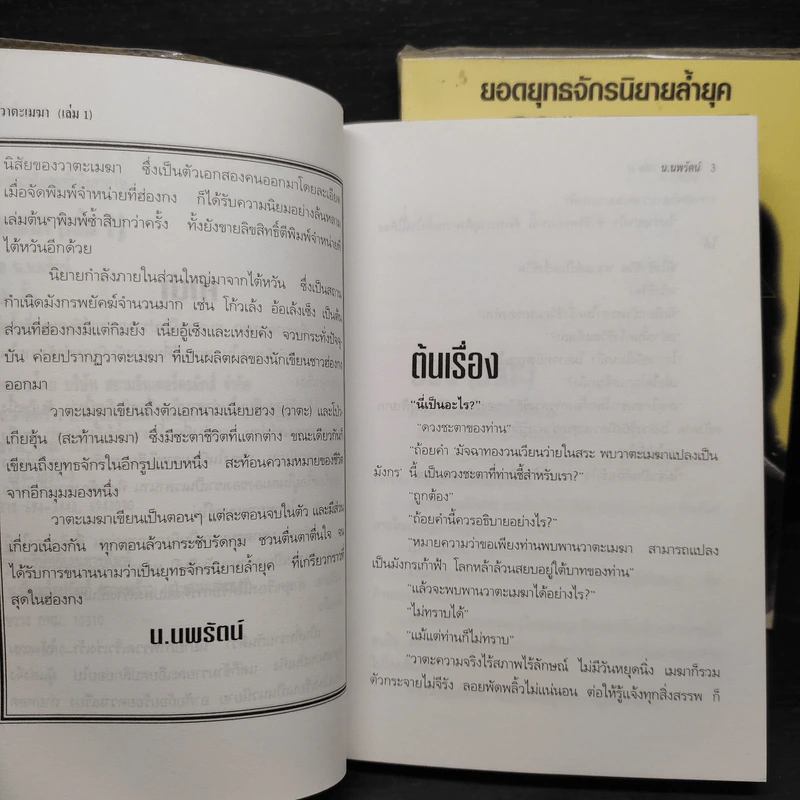 วาตะเมฆา (เล่ม 1)
นิสัยของวาตะเมฆา ซึ่งเป็นตัวเอกสองคนออกมาโดยละเอียด
เมื่อจัดพิมพ์จำหน่ายที่ฮ่องกง ก็ได้รับความนิยมอย่างล้นหลาม
เล่มต้นๆพิมพ์ซ้ำสิบกว่าครั้ง ทั้งยังขายลิขสิทธิ์ตีพิมพ์จำหน่ายที่
ไต้หวันอีกด้วย
นิยายกำลังภายในส่วนใหญ่มาจากไต้หวัน ซึ่งเป็นสถาน
กำเนิดมังกรพยัคฆ์จำนวนมาก เช่น โก้วเล้ง อ้อเล้งเซ็ง เป็นต้น
ส่วนที่ฮ่องกงมีแต่กิมย้ง เนี่ยอู้เซ็งและเหง่ยคัง จวบกระทั่งปัจจุ-
บัน ค่อยปรากฏวาตะเมฆา ที่เป็นผลิตผลของนักเขียนชาวฮ่องกง
ออกมา
วาตะเมฆาเขียนถึงตัวเอกนามเนียบฮวง (วาตะ) และโปว
เกียฮุ้น (สะท้านเมฆา) ซึ่งมีชะตาชีวิตที่แตกต่าง ขณะเดียวกันก็
เขียนถึงยุทธจักรในอีกรูปแบบหนึ่ง สะท้อนความหมายของชีวิต
จากอีกมุมมองหนึ่ง
วาตะเมฆาเขียนเป็นตอนๆ แต่ละตอนจบในตัว และมีส่วน
เกี่ยวเนื่องกัน ทุกตอนล้วนกระชับรัดกุม ชวนตื่นตาตื่นใจ จน
ได้รับการขนานนามว่าเป็นยุทธจักรนิยายล้ำยุค ที่เกรียวกราวที่
สุดในฮ่องกง
น.นพรัตน์
ยอดยุทธจักรนิยายล้ำยุค
น.นพรัตน์ 3
ต้นเรื่อง
"นี่เป็นอะไร?"
"ดวงชะตาของท่าน"
"ถ้อยคำ 'มัจฉาทองวนเวียนว่ายในสระ พบวาตะเมฆาแปลงเป็น
มังกร' นี้ เป็นดวงชะตาที่ท่านชี้สำหรับเรา?"
"ถูกต้อง"
"ถ้อยคำนี้ควรอธิบายอย่างไร?"
"หมายความว่าขอเพียงท่านพบพานวาตะเมฆา สามารถแปลง
เป็นมังกรเก้าฟ้า โลกหล้าล้วนสยบอยู่ใต้บาทของท่าน"
"แล้วจะพบพานวาตะเมฆาได้อย่างไร?"
"ไม่ทราบได้"
"แม้แต่ท่านก็ไม่ทราบ"
"วาตะความจริงไร้สภาพไร้ลักษณ์ ไม่มีวันหยุดนิ่ง เมฆาก็รวม
ตัวกระจายไม่จีรัง ลอยพัดพลิ้วไม่แน่นอน ต่อให้รู้แจ้งทุกสิ่งสรรพ ก็